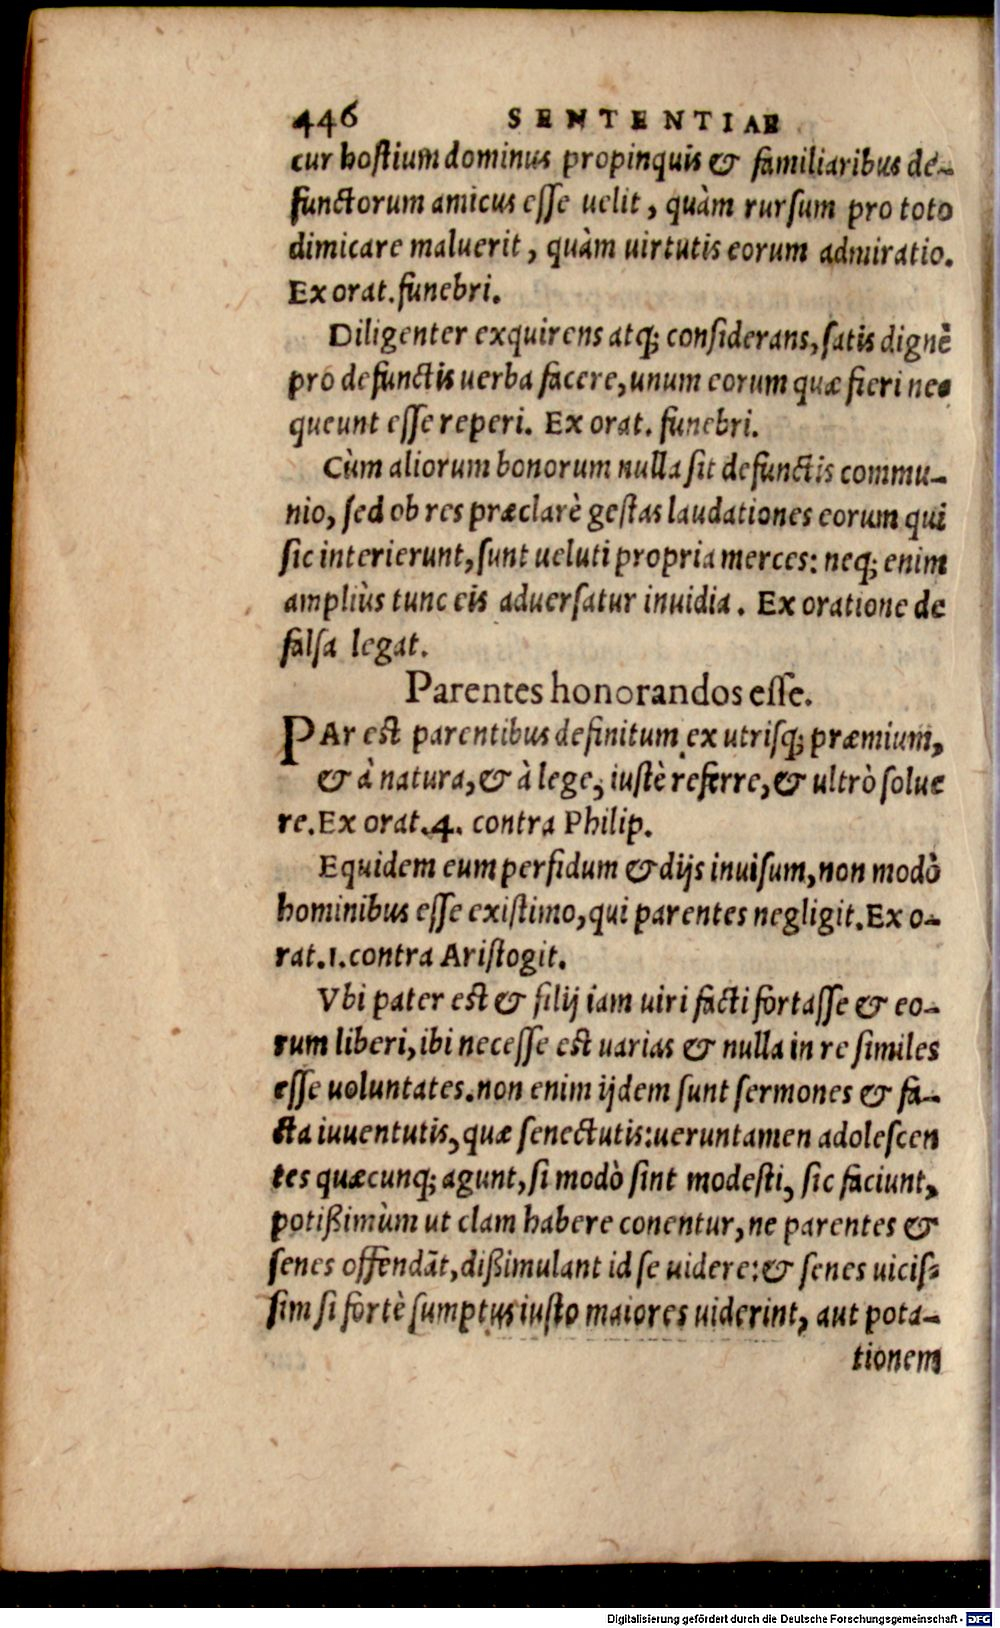 446 SENTENTIAE
cur hostium dominus propinquis & familiaribus de-
functorum amicus esse uelit, quàm rursum pro toto
dimicare maluerit, quàm uirtutis eorum admiratio.
Ex orat. funebri.
Diligenter exquirens atq; considerans, satis dignè
pro defunctis uerba facere, unum eorum quæ fieri ne-
queunt esse reperi. Ex orat. funebri.
Cùm aliorum bonorum nulla sit defunctis commu-
nio, sed ob res præclarè gestas laudationes eorum qui
sic interierunt, sunt ueluti propria merces: neq; enim
ampliùs tunc eis aduersatur inuidia. Ex oratione de
falsa legat.
Parentes honorandos esse.
PAr est parentibus definitum ex utrisq; præmium,
& à natura, & à lege, iustè referre, & ultrò solue
re. Ex orat. 4. contra Philip.
Equidem eum perfidum & dijs inuisum, non modò
hominibus esse existimo, qui parentes negligit. Ex o-
rat. 1. contra Aristogit.
Vbi pater est & filij iam uiri facti fortasse & eo-
rum liberi, ibi necesse est uarias & nulla in re similes
esse uoluntates. non enim ijdem sunt sermones & fa-
cta iuuentutis, quæ senectutis: ueruntamen adolescen
tes quæcunq; agunt, si modò sint modesti, sic faciunt,
potißimùm ut clam habere conentur, ne parentes &
senes offendãt, dißimulant id se uidere: & senes uicis-
sim si fortè sumptus iusto maiores uiderint, aut pota-
tionem
Digitalisierung gefördert durch die Deutsche Forschungsgemeinschaft - DFG